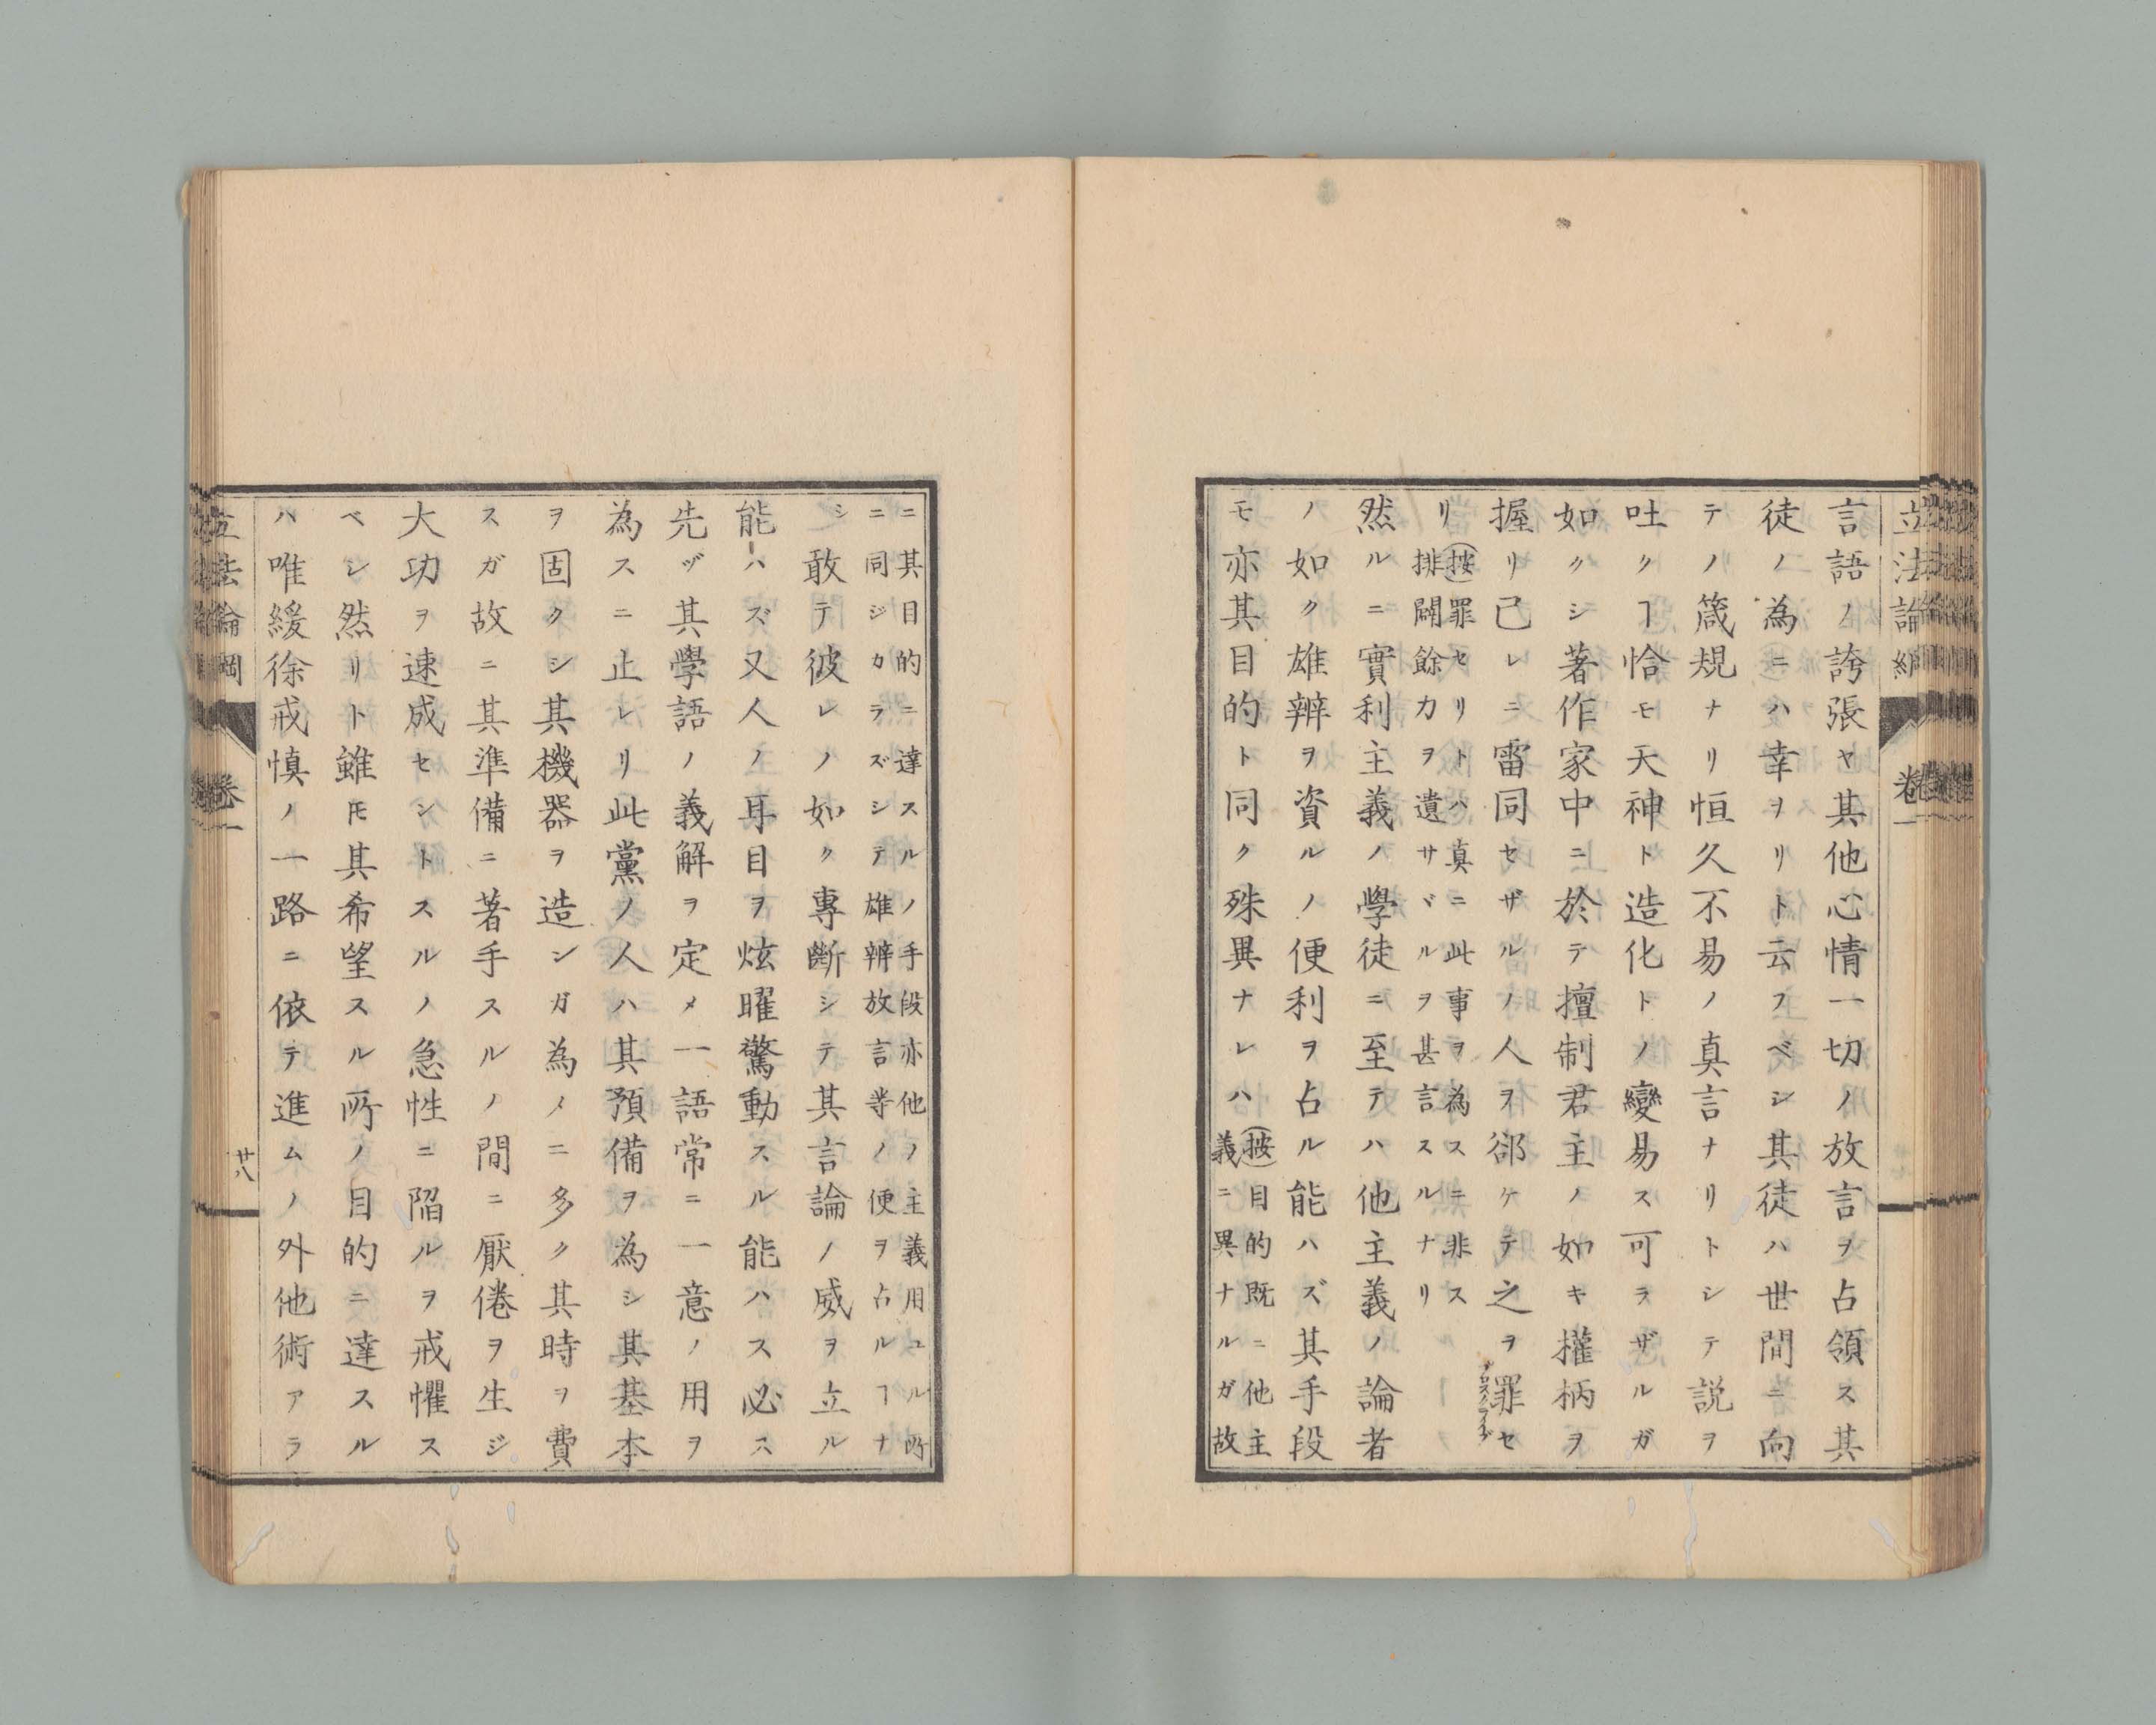 立法論綱 卷一
言語ノ誇張ヤ其他心情一切ノ放言ヲ占領ス其
徒ノ為ニハ幸ヲリト云フベシ其徒ハ世間ニ向
テノ箴規ナリ恒久不易ノ真言ナリトシテ説ヲ
吐クヿ恰モ天神ト造化トノ變易ス可ラザルガ
如クシ著作家中ニ於テ擅制君主ノ如キ權柄ヲ
握リ己レニ雷同セザルノ人ヲ郤ケテ之ヲ罪セ
リ
(按)罪セリトハ真ニ此事ヲ為スニ非ス
排闢餘力ヲ遺サヾルヲ甚言スルナリ
然ルニ實利主義ノ學徒ニ至テハ他主義ノ論者
ノ如ク雄辨ヲ資ルノ便利ヲ占ル能ハズ其手段
モ亦其目的ト同ク殊異ナレハ
(按)目的既ニ他主
義ニ異ナルガ故
ニ其目的ニ達スルノ手段亦他ノ主義用ユル所
ニ同ジカラズシテ雄辨放言等ノ便ヲ占ルヿナ
シ
敢テ彼レノ如ク專斷シテ其言論ノ威ヲ立ル
能ハズ又人ノ耳目ヲ炫曜驚動スル能ハス必ス
先ヅ其學語ノ義解ヲ定メ一語常ニ一意ノ用ヲ
為スニ止レリ此黨ノ人ハ其預備ヲ為シ其基本
ヲ固クシ其機器ヲ造ンガ為メニ多ク其時ヲ費
スガ故ニ其準備ニ著手スルノ間ニ厭倦ヲ生ジ
大功ヲ速成セシトスルノ急性ニ陷ルヲ戒懼ス
ベシ然リト雖𪜈其希望スル所ノ目的ニ達スル
ハ唯緩徐戒慎ノ一路ニ依テ進ムノ外他術アラ
立法論綱 卷一 廿八